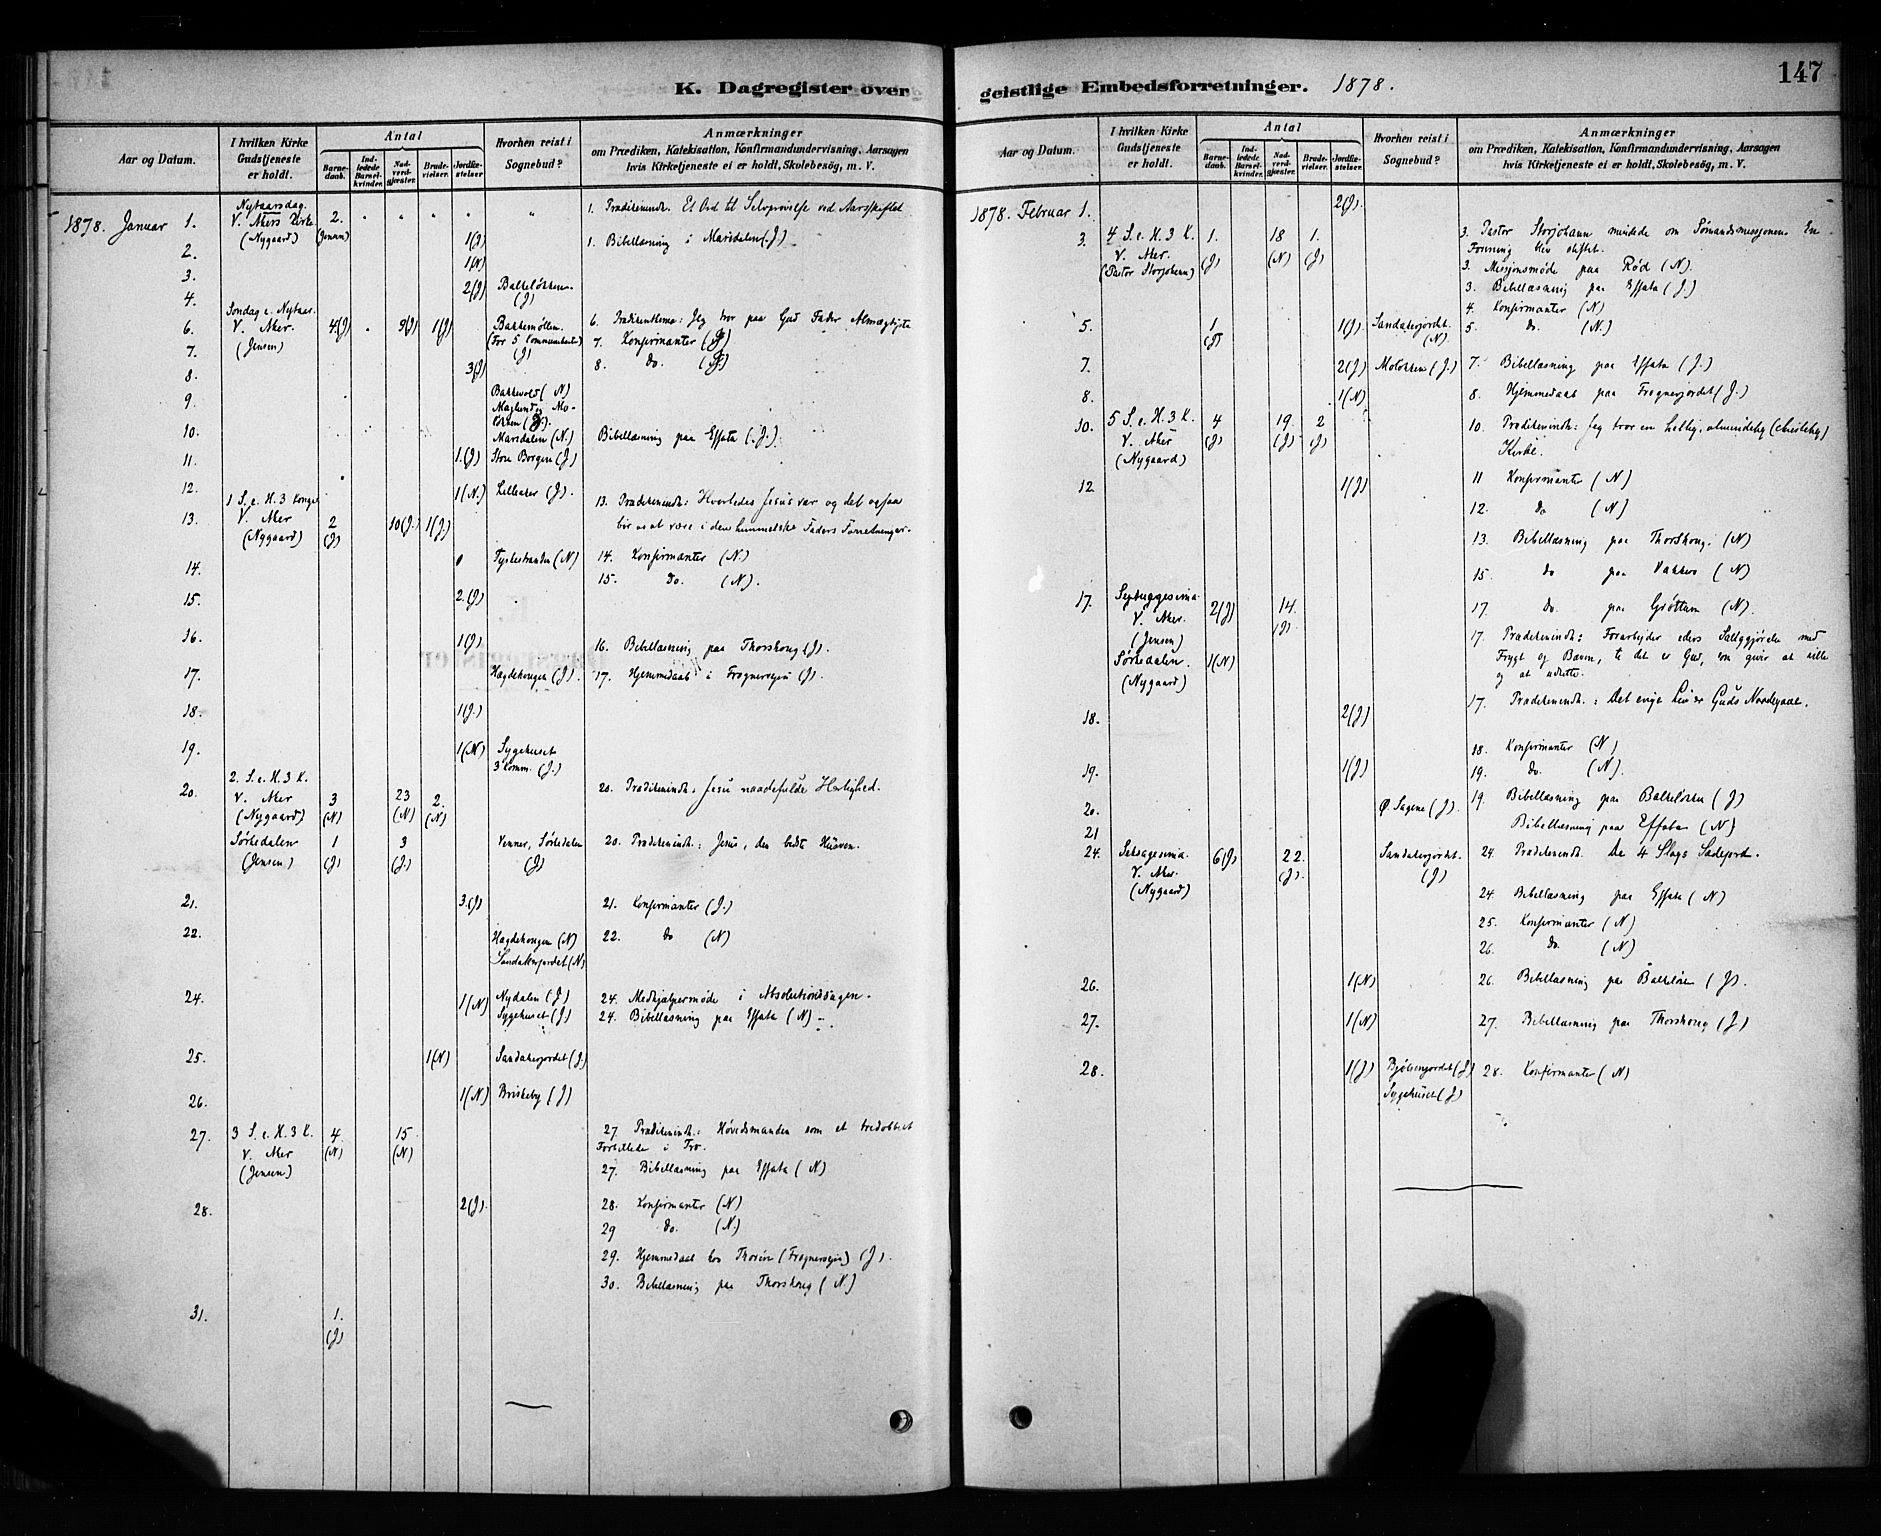 K. Dagregister over
Aar og Datum.
I hvilken Kirke Gudstjeneste er holdt.
Antal
Barne-daab.
Ind-ledede Barsel-kvinder.
Nad-verd-gjæster.
Brude-vielser.
Jordfæ-stelser
Hvorhen reist i Sognebud?
Anmærkninger
om Prædiken, Katekisation, Konfirmandundervisning, Aarsagen
hvis Kirketjeneste ei er holdt, Skolebesøg, m. V.
1878. Januar 1. Nytaarsdag. V. Akers Kirke (Nygaard) 2. (Jensen) 1. Prædikenindh. Et Ord til Selvprøvelse ved Aarsskiftet
1(J) 1. Bibellæsning i Marsdalen (J)
2. 1(N)
3. 2(J) Balkeløkken (J)
4.
6. Søndag e. Nytaar. V. Aker. (Jensen) 4(J) 9(J) 1(J) Bakkemøllen. (For 5 Kommunikanter) (J) 6. Prædikenthema: Jeg tror paa Gud Fader Almægtigste
7. 7. Konfirmanter (J)
8. 3(J) 8. do. (J)
9. Bakkevold (N)
Marsdalen (N.)
10. Bibellæsning paa Effata (J.)
11. 1.(J) Store Borgen (J)
12. 1(N.) Lilleaker (J).
13. 1 S. e. H. 3 Konger V. Aker (Nygaard) 2 (J) 10(J.) 1(J.) 13. Prædikenindh: Hvorledes Jesus var og det ogsaa
bør os at være i den himmelske Faders Forretninger.
14. (N) 14. Konfirmanter (N.)
15. 2.(J) 15. do. (N).
16. 1(J) 16. Bibellæsning paa Thorshaug (J).
17. Hægdehaugen (J). 17. Hjemmedaab i Frognerveien (J).
18. 1(J.)
19. 1(N) Sygehuset 3 Komm. (J.)
20. 2. S. e. H. 3 K. V. Aker (Nygaard) 3 (N) 23 (N) 2. (N) 20. Prædikenindh: Jesu naadefulde Herlighed.
Sørkedalen (Jensen) 1 (J) 3 (J) Venner, Sørkedalen (J) 20. Prædikenindh.: Jesus, den bedste Husven.
21. 3.(J) 21. Konfirmanter (J.)
22. Hægdehaugen (N) 22. do (N)
Sandakerjordet (N)
24. 1(N) Nydalen (J) 24. Medhjælpermøde i Absolutionssagen.
Sygehuset (J) 24. Bibellæsning paa Effata (N)
25. 1(N) Sandakerjordet (J.)
26. 1(N) Briskeby (J)
27. 3 S. e. H. 3 K. V. Aker (Jensen) 4. (N) 15 (N) 27 Prædikenindh.: Høvedsmanden som et tredobbelt
Forbillede i Tro.
27. Bibellæsning paa Effata (N)
28. 2(J). 28. Konfirmanter (N)
29 do. (N.)
29. Hjemmedaab hos (Frognerveien) (J).
30. Bibellæsning paa Thorshaug (N)
31. 1. (J)
geistlige Embedsforretninger. 1878.
147
Aar og Datum.
I hvilken Kirke Gudstjeneste er holdt.
Antal
Barne-daab.
Ind-ledede Barsel-kvinder.
Nad-verd-gjæster.
Brude-vielser.
Jordfæ-stelser
Hvorhen reist i Sognebud?
Anmærkninger
om Prædiken, Katekisation, Konfirmandundervisning, Aarsagen
hvis Kirketjeneste ei er holdt, Skolebesøg, m. V.
1878. Februar 1. 2(J).
3. 4 S. e. H. 3 K. V. Aker. (Pastor Storjohann) 1. (J) 18 (N) 1. (J) 3. Pastor Storjohann mindede om Sømandsmissjonen. En
Forening blev stiftet.
3. Missjonsmøde paa Rød (N).
3. Bibellæsning paa Effata (J.)
4. Konfirmanter (N)
5. 1 (J) 1(J). Sandakerjordet. (N) 5. do. (N.)
7. 2(J) Moløkken (J.) 7. Bibellæsning paa Effata (J.)
8. 1(N) 8. Hjemmedaab paa Frognerjordet (J.)
10. 5 S. e. H. 3 K. V. Aker (Nygaard) 4 (J) 19. (J) 2 (J) 10. Prædikenindh: Jeg tror en hellig, almindelig (christelig)
Kirke.
11 Konfirmanter (N)
12. 1(J) 12. do (N)
13. Bibellæsning paa Thorshaug. (N)
15. do paa Vækkerø (N)
17. Septuagesima V. Aker. (Jensen) 2(J) 14. (J) 17. do. paa Grøttum (N).
17. Prædikenindh: Forarbejder eders Saliggjørelse med
Frygt og Bæven, ti det er Gud, som giver at ville
og at udrette.
Sørkedalen. (Nygaard) 1(N) 17. Prædikenindh.: Det evige Liv er Guds Naadegave.
18. 2(J) 18. Konfirmanter (N)
19. 1(J) 19. do (N).
20. Ø. Sagene (J). 19. Bibellæsning paa Balkeløkken (J)
21 Bibellæsning paa Effata (N)
24. Seksagesima. V. Aker. (Nygaard) 6(J) 22. (J). Sandakerjordet. (J) 24. Prædikenindh. De 4 Slags Sædejord.
24. Bibellæsning paa Effata (N)
25. Konfirmanter (N)
26. do. (N)
26. 1(N) 26. Bibellæsning paa Balkeløken (J).
27. 1(N) 27. Bibellæsning paa Thorshaug (J)
28. 1(J) Bjølsenjordet (J) 28. Konfirmanter (N)
Sygehuset (J)